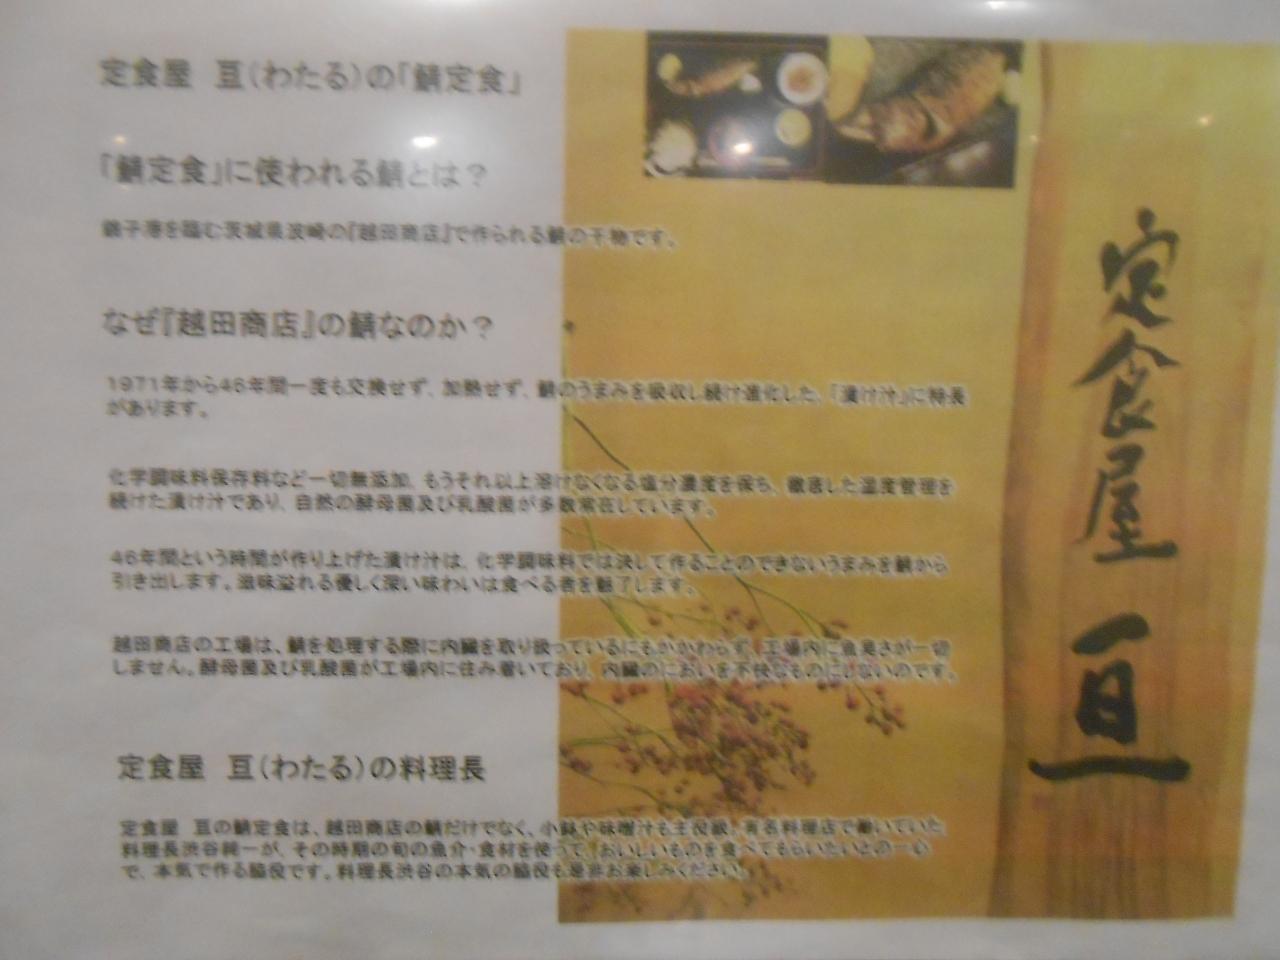 定食屋 亘(わたる)の「鯖定食」
「鯖定食」に使われる鯖とは?
銚子港を臨む茨城県波崎の『越田商店』で作られる鯖の干物です。
なぜ『越田商店』の鯖なのか?
1971年から46年間一度も交換せず、加熱せず、鯖のうまみを吸収し続け進化した、「漬け汁」に特長
があります。
化学調味料保存料など一切無添加、もうそれ以上溶けなくなる塩分濃度を保ち、徹底した温度管理を
続けた漬け汁であり、自然の酵母菌及び乳酸菌が多数常在しています。
46年間という時間が作り上げた漬け汁は、化学調味料では決して作ることのできないうまみを鯖から
引き出します。滋味溢れる優しく深い味わいは食べる者を魅了します。
越田商店の工場は、鯖を処理する際に内臓を取り扱っているにもかかわらず、工場内に魚臭さが一切
しません。酵母菌及び乳酸菌が工場内に住み着いており、内臓のにおいを不快なものにしないのです。
定食屋 亘(わたる)の料理長
定食屋 亘の鯖定食は、越田商店の鯖だけでなく、小鉢や味噌汁も主役級。有名料理店で働いていた
料理長渋谷純一が、その時期の旬の魚介・食材を使って、おいしいものを食べてもらいたいとの一心
で、本気で作る脇役です。料理長渋谷の本気の脇役も是非お楽しみください。
定食屋 亘